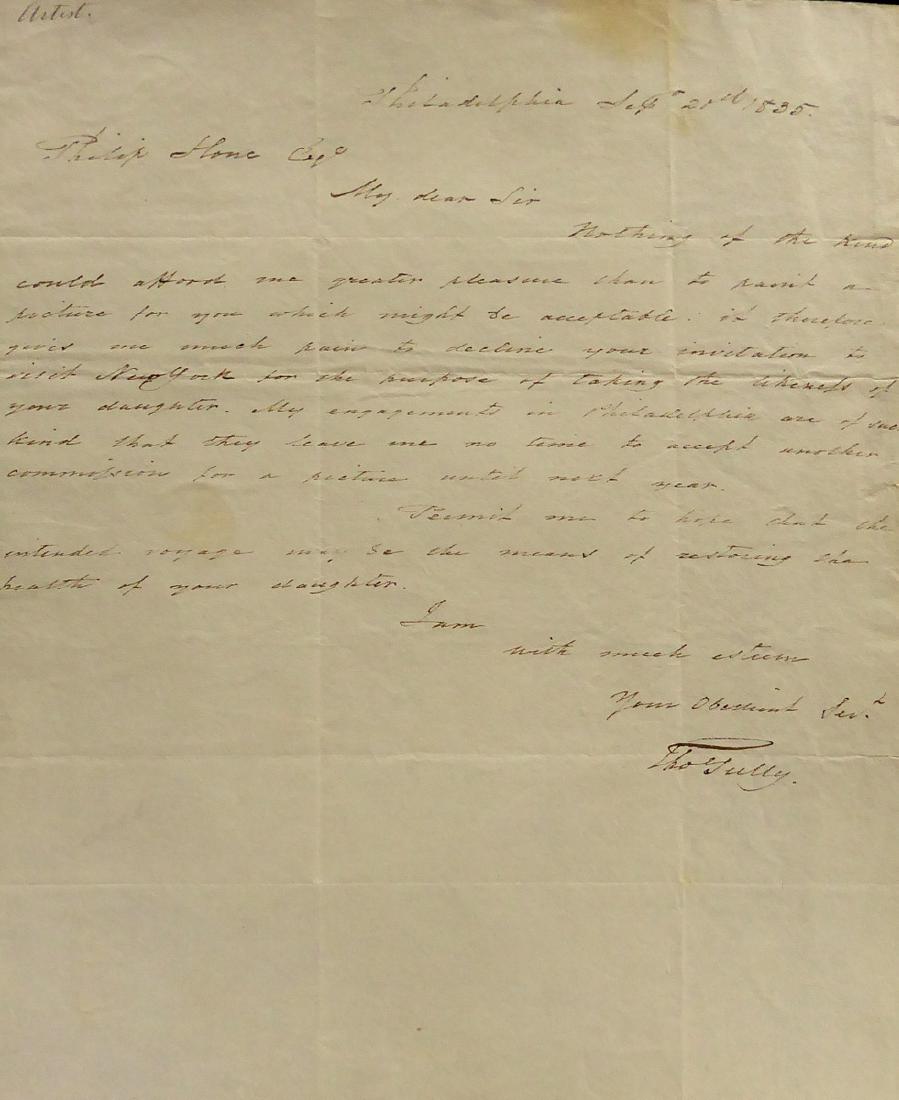 Artist.
Philadelphia Sepr 20th 1835.
Philip Hone Esqe
My dear Sir
Nothing of the kind
could afford me greater pleasure than to paint a
picture for you which might be acceptable: it therefore
gives me much pain to decline your invitation to
visit New York for the purpose of taking the likeness of
your daughter. My engagements in Philadelphia are of such
kind that they leave me no time to accept another
commission for a picture until next year.
Permit me to hope that the
intended voyage may be the means of restoring the
health of your daughter.
I am
with much esteem
Your Obedient Servt
Tho Sully.